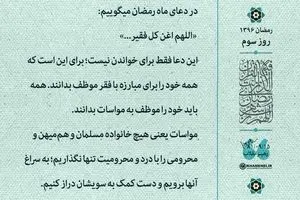 در دعای ماه رمضان میگوییم:
«اللهم اغن کل فقیر...»
این دعا فقط برای خواندن نیست؛ برای این است که
همه خود را برای مبارزه با فقر موظف بدانند. همه
باید خود را موظف به مواسات بدانند.
مواسات یعنی هیچ خانواده مسلمان و هم‌میهن و
محرومی را با درد و محرومیت تنها نگذاریم؛ به سراغ
آنها برویم و دست کمک به سویشان دراز کنیم.
رمضان ۱۳۹۶
روز سوم
KHAMENEI.IR